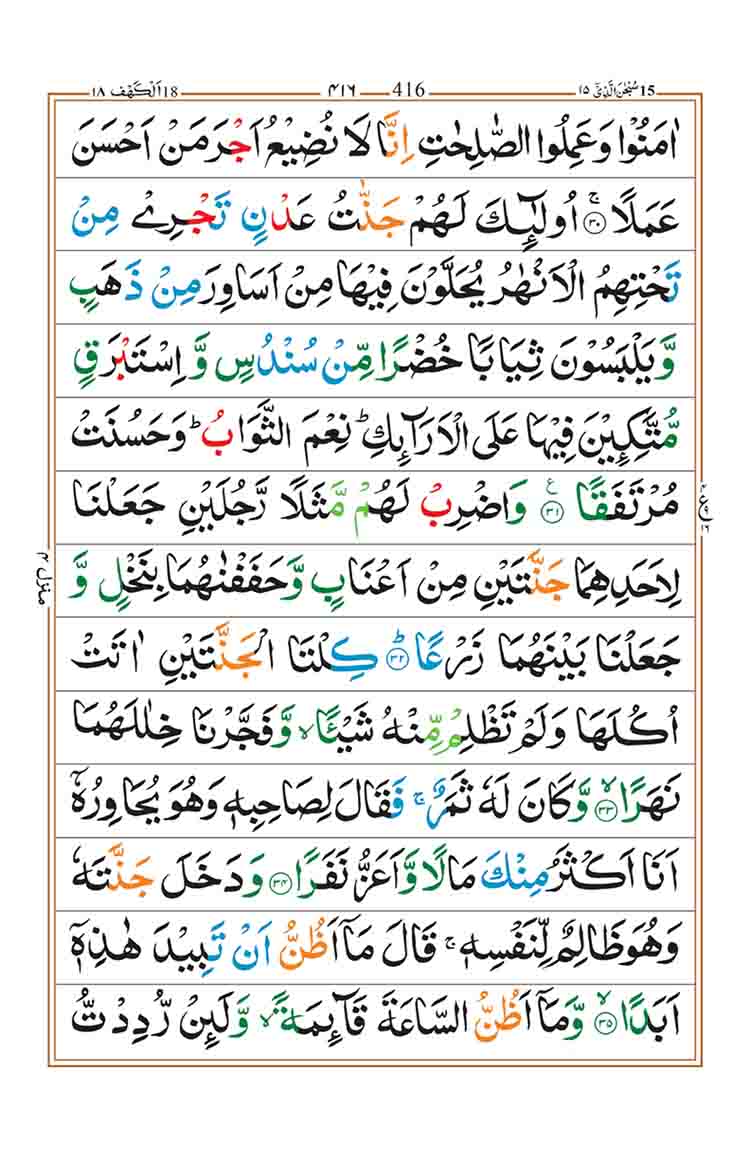 15 سُبْحٰنَ الَّذِیْۤ ۱۵ 416 ۴۱۶ 18 اَلْكَهْف ۱۸
اٰمَنُوْا وَعَمِلُوا الصّٰلِحٰتِ اِنَّا لَا نُضِیْعُ اَجْرَ مَنْ اَحْسَنَ
عَمَلًا ۚ‏﴿۳۰﴾ اُولٰٓئِكَ لَهُمْ جَنّٰتُ عَدْنٍ تَجْرِیْ مِنْ
تَحْتِهِمُ الْاَنْهٰرُ یُحَلَّوْنَ فِیْهَا مِنْ اَسَاوِرَ مِنْ ذَهَبٍ
وَّیَلْبَسُوْنَ ثِیَابًا خُضْرًا مِّنْ سُنْدُسٍ وَّ اِسْتَبْرَقٍ
مُّتَّكِـِٕیْنَ فِیْهَا عَلَی الْاَرَآئِكِ ؕ نِعْمَ الثَّوَابُ ؕ وَحَسُنَتْ
مُرْتَفَقًا ﴿۳۱﴾ ع وَاضْرِبْ لَهُمْ مَّثَلًا رَّجُلَیْنِ جَعَلْنَا
لِاَحَدِهِمَا جَنَّتَیْنِ مِنْ اَعْنَابٍ وَّحَفَفْنٰهُمَا بِنَخْلٍ وَّ
جَعَلْنَا بَیْنَهُمَا زَرْعًا ؕ﴿۳۲﴾ كِلْتَا الْجَنَّتَیْنِ اٰتَتْ
اُكُلَهَا وَلَمْ تَظْلِمْ مِّنْهُ شَیْـًٔا ۙ وَّفَجَّرْنَا خِلٰلَهُمَا
نَهَرًا ۙ﴿۳۳﴾ وَّكَانَ لَهٗ ثَمَرٌ ۚ فَقَالَ لِصَاحِبِهٖ وَهُوَ یُحَاوِرُهٗۤ
اَنَا اَكْثَرُ مِنْكَ مَالًا وَّاَعَزُّ نَفَرًا ﴿۳۴﴾ وَدَخَلَ جَنَّتَهٗ
وَهُوَ ظَالِمٌ لِّنَفْسِهٖ ۚ قَالَ مَاۤ اَظُنُّ اَنْ تَبِیْدَ هٰذِهٖۤ
اَبَدًا ۙ﴿۳۵﴾ وَّمَاۤ اَظُنُّ السَّاعَةَ قَآئِمَةً ۙ وَّلَئِنْ رُّدِدْتُّ
منزل ۴